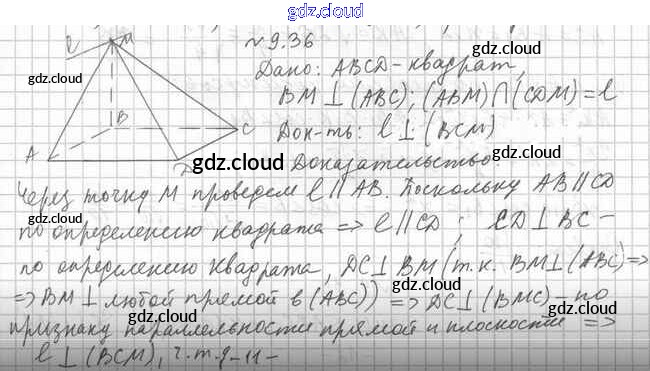 gdz.cloud
№ 9.36
Дано: ABCD – квадрат,
BM ⊥ (ABC); (ABM) ∩ (CDM) = l
Док-ть: l ⊥ (BCM)
Доказательство
Через точку M проведем l || AB. Поскольку AB || CD
по определению квадрата => l || CD ; CD ⊥ BC –
по определению квадрата, DC ⊥ BM (т.к. BM ⊥ (ABC) =>
=> BM ⊥ любой прямой в (ABC)) => DC ⊥ (BMC) – по
признаку параллельности прямой и плоскости =>
l ⊥ (BCM), ч.т.д. -11-
l
M
B
C
A
D
gdz.cloud
gdz.cloud
gdz.cloud
gdz.cloud
gdz.cloud
gdz.cloud
gdz.cloud
gdz.cloud
gdz.cloud
gdz.cloud
gdz.cloud
gdz.cloud